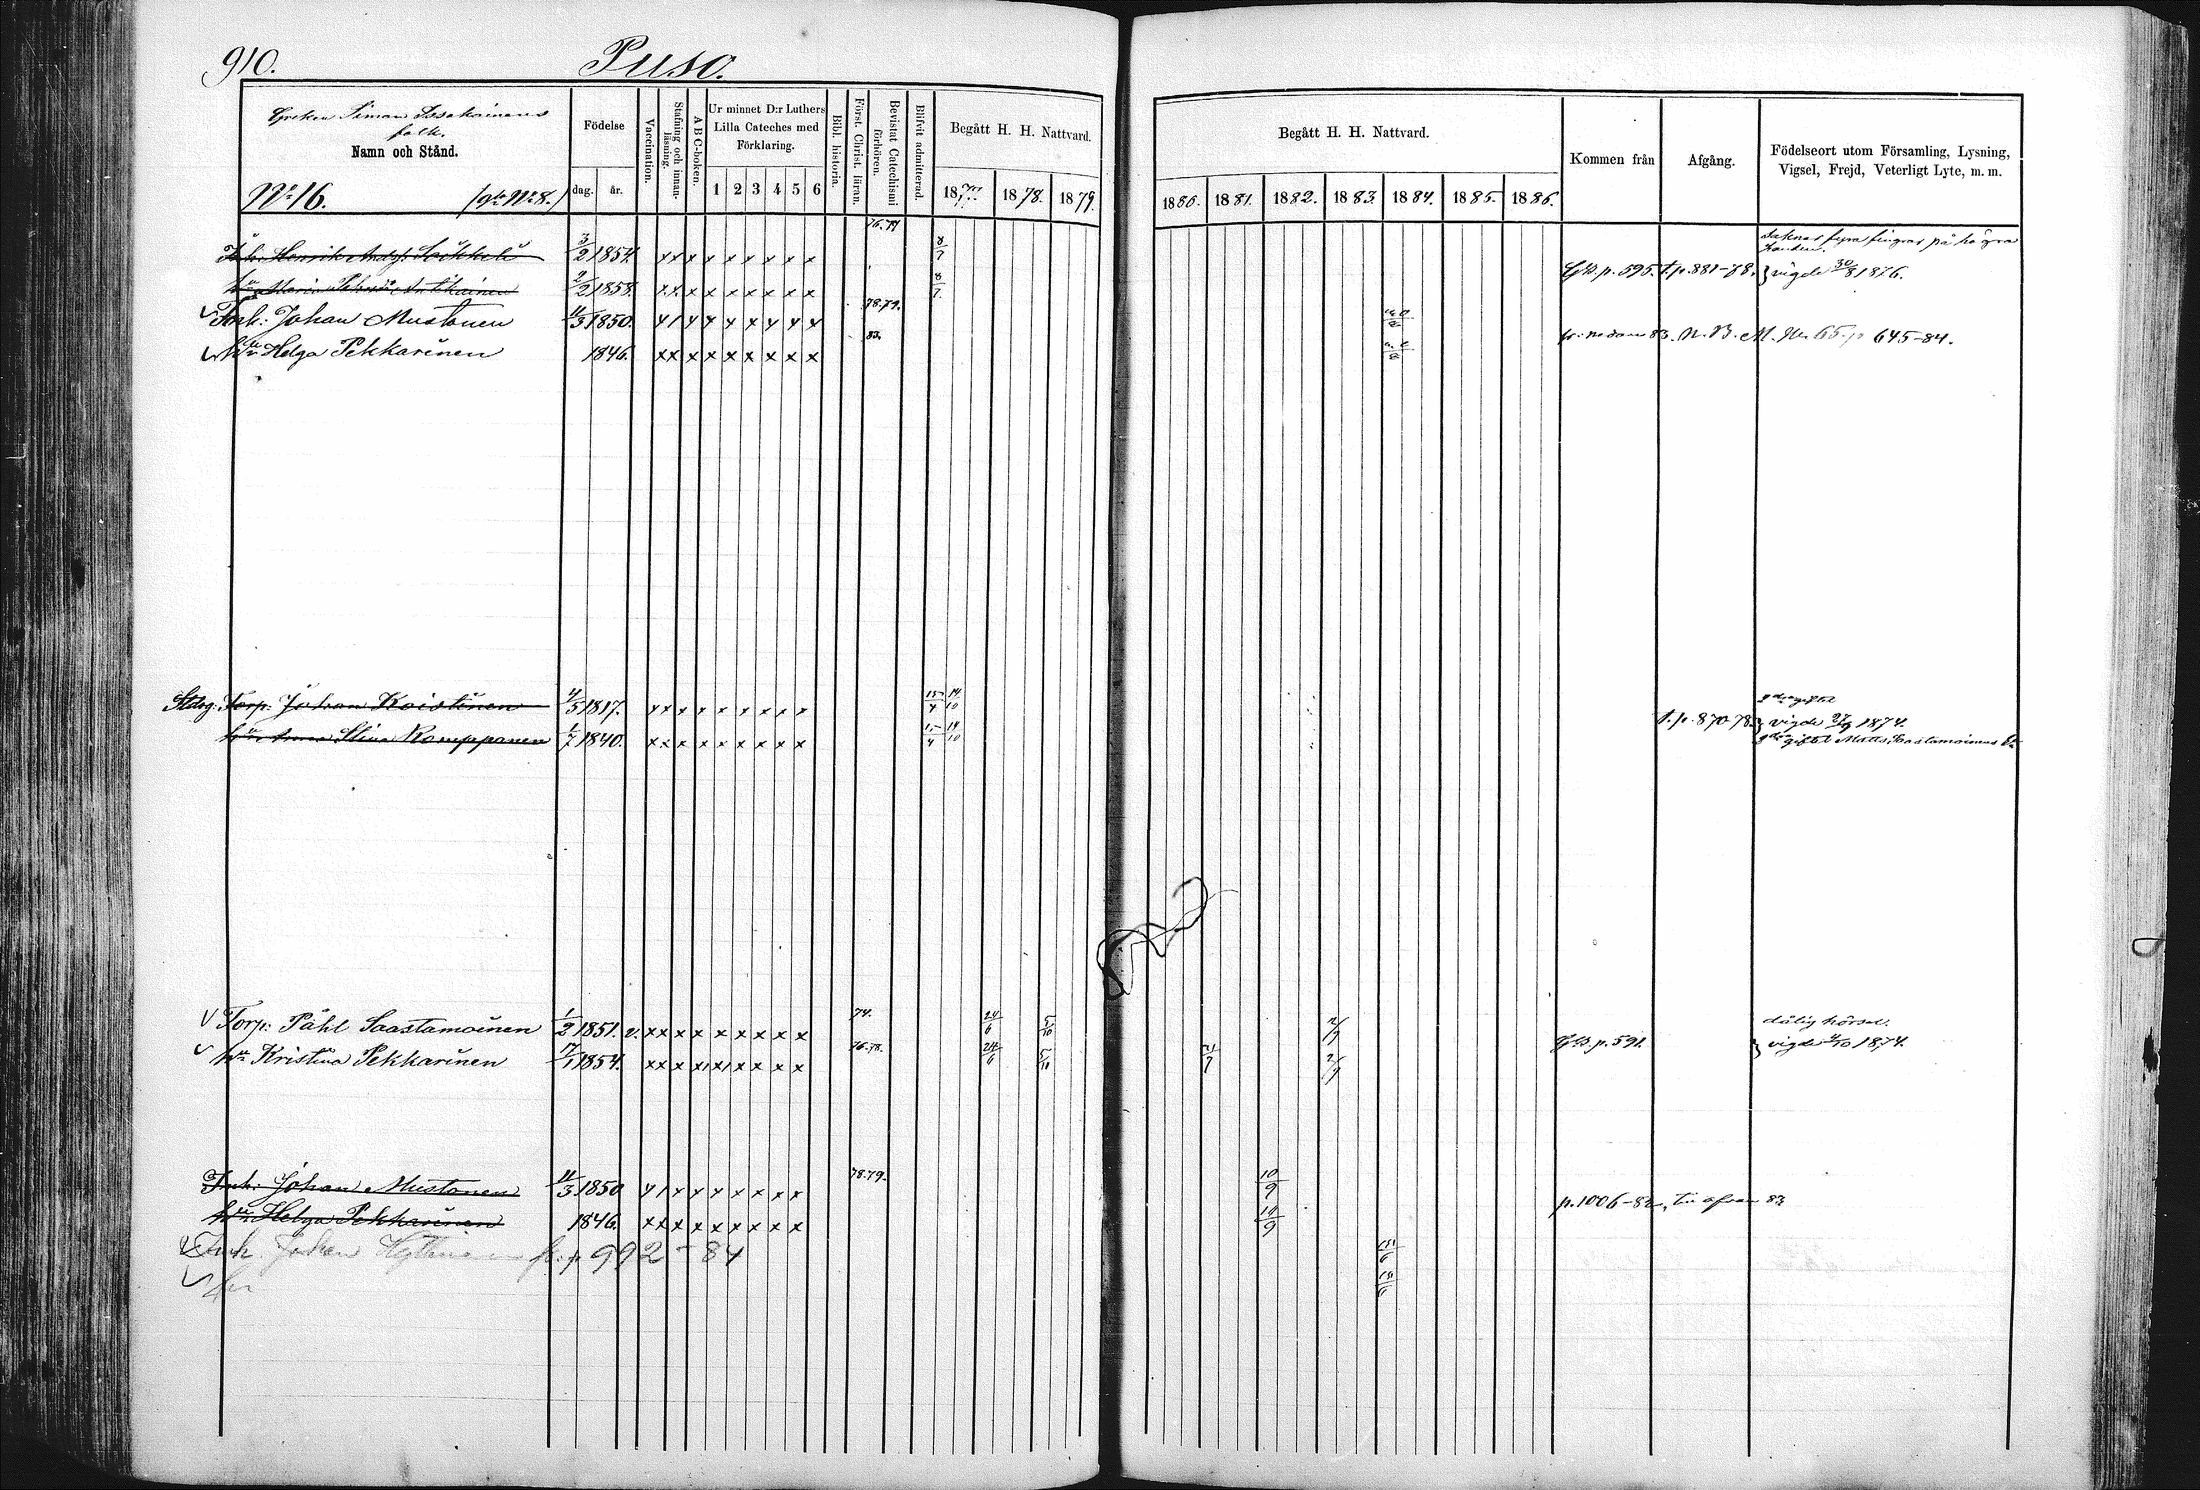 910. Puso.
Greken Siman folk.
Namn och Stånd.
No 16. No 8.
Födelse
dag. år.
Vaccination.
Stafning och innanläsning.
A B C-boken.
Ur minnet D:r Luthers
Lilla Cateches med
Förklaring.
1 2 3 4 5 6
Bibl. historia.
Först. Christ. läran.
Bevistat Catechismi förhören.
Blifvit admitterad.
Begått H. H. Nattvard.
1877. 1878. 1879.
Begått H. H. Nattvard.
1880. 1881. 1882. 1883. 1884. 1885. 1886.
Kommen från
Afgång.
Födelseort utom Församling, Lysning,
Vigsel, Frejd, Veterligt Lyte, m. m.
76.77
Inh: Henrik 3/2 1854. x x x x x x x x x 8/7 saknar fyra fingrar på högra handen.
Maria 2/2 1858. x x x x x x x x x 8/7 p. 595. t. p. 881-78. vigde 30/8 1876.
Inh: Johan Mustonen 11/3 1850. 78.79.
hu Helga Pekkarinen 1846. x x x x x x x x x 83. fr. nedan 83. N. B. M. No 65. p 645-84.
Stdrg. Torp: Johan Koistinen 4/5 1817. x x x x x x x x x 15/4 14/10
hu Anna Stina Romppanen 1/7 1840. x x x x x x x x x 15/4 14/10 t. p. 870-78. vigde 27/9 1874.
gift Matts Saastamoinens
V Torp: Påhl Saastamoinen 1/2 1851. v. x x x x x x x x x 74. 24/6 5/10 2/9 dålig hörsel.
hu Kristina Pekkarinen 17/1 1854. x x x x x x x x x 76.78. 24/6 5/10 2/9 p. 591. vigde 4/10 1874.
Inh: Johan Mustonen 11/3 1850 78.79. 10/9
hu Helga Pekkarinen 1846. x x x x x x x x x 10/9 p. 1006-82, till ofvan 83
Inh. Johan fr. p 992-84 15/6
15/6